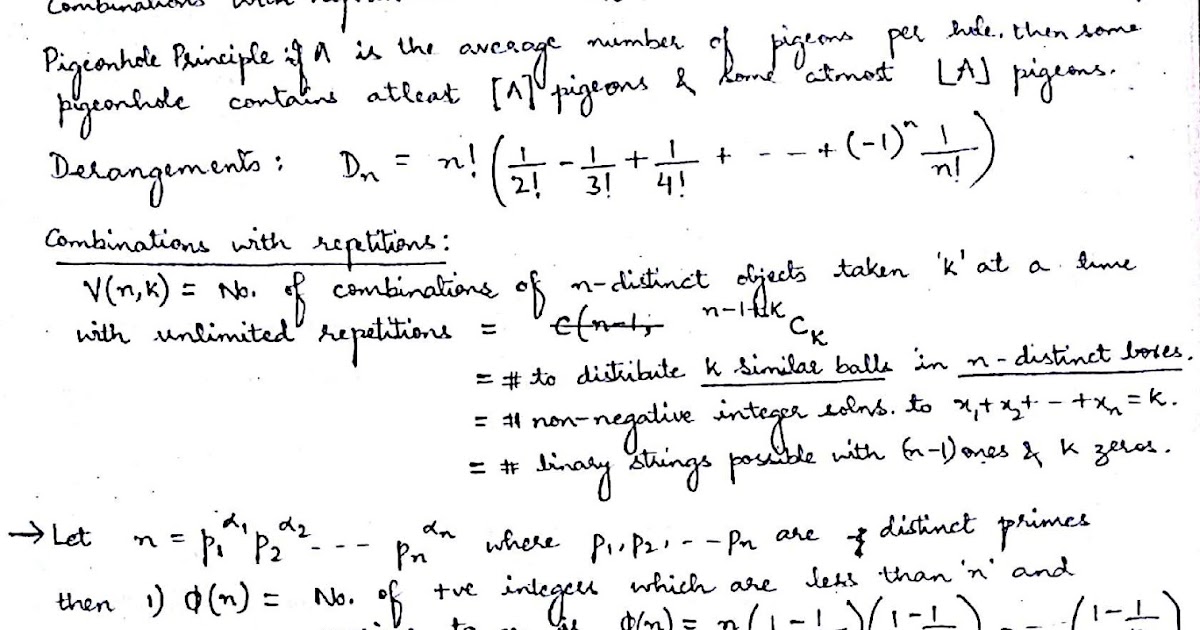 Combinations with
Pigeonhole Principle : if A is the average number of pigeons per hole, then some
pigeonhole contains atleat ⌈A⌉ pigeons & some atmost ⌊A⌋ pigeons.
Derangements : Dn = n! (1/2! - 1/3! + 1/4! + - - - + (-1)^n 1/n!)
Combinations with repetitions :
V(n,k) = No. of combinations of n-distinct objects taken 'k' at a time
with unlimited repetitions = C(n-1, n-1+k C k
= # to distribute k similar balls in n-distinct boxes.
= # non-negative integer solns. to x₁+x₂+ - +xₙ = k.
= # binary strings possible with (n-1) ones & k zeros.
→ Let n = p₁^α₁ p₂^α₂ - - - pₙ^αₙ where p₁, p₂, - - pₙ are distinct primes
then 1) ϕ(n) = No. of +ve integers which are less than 'n' and
ϕ(n) = n(1-1 )(1-1 ) - - - (1-1 )